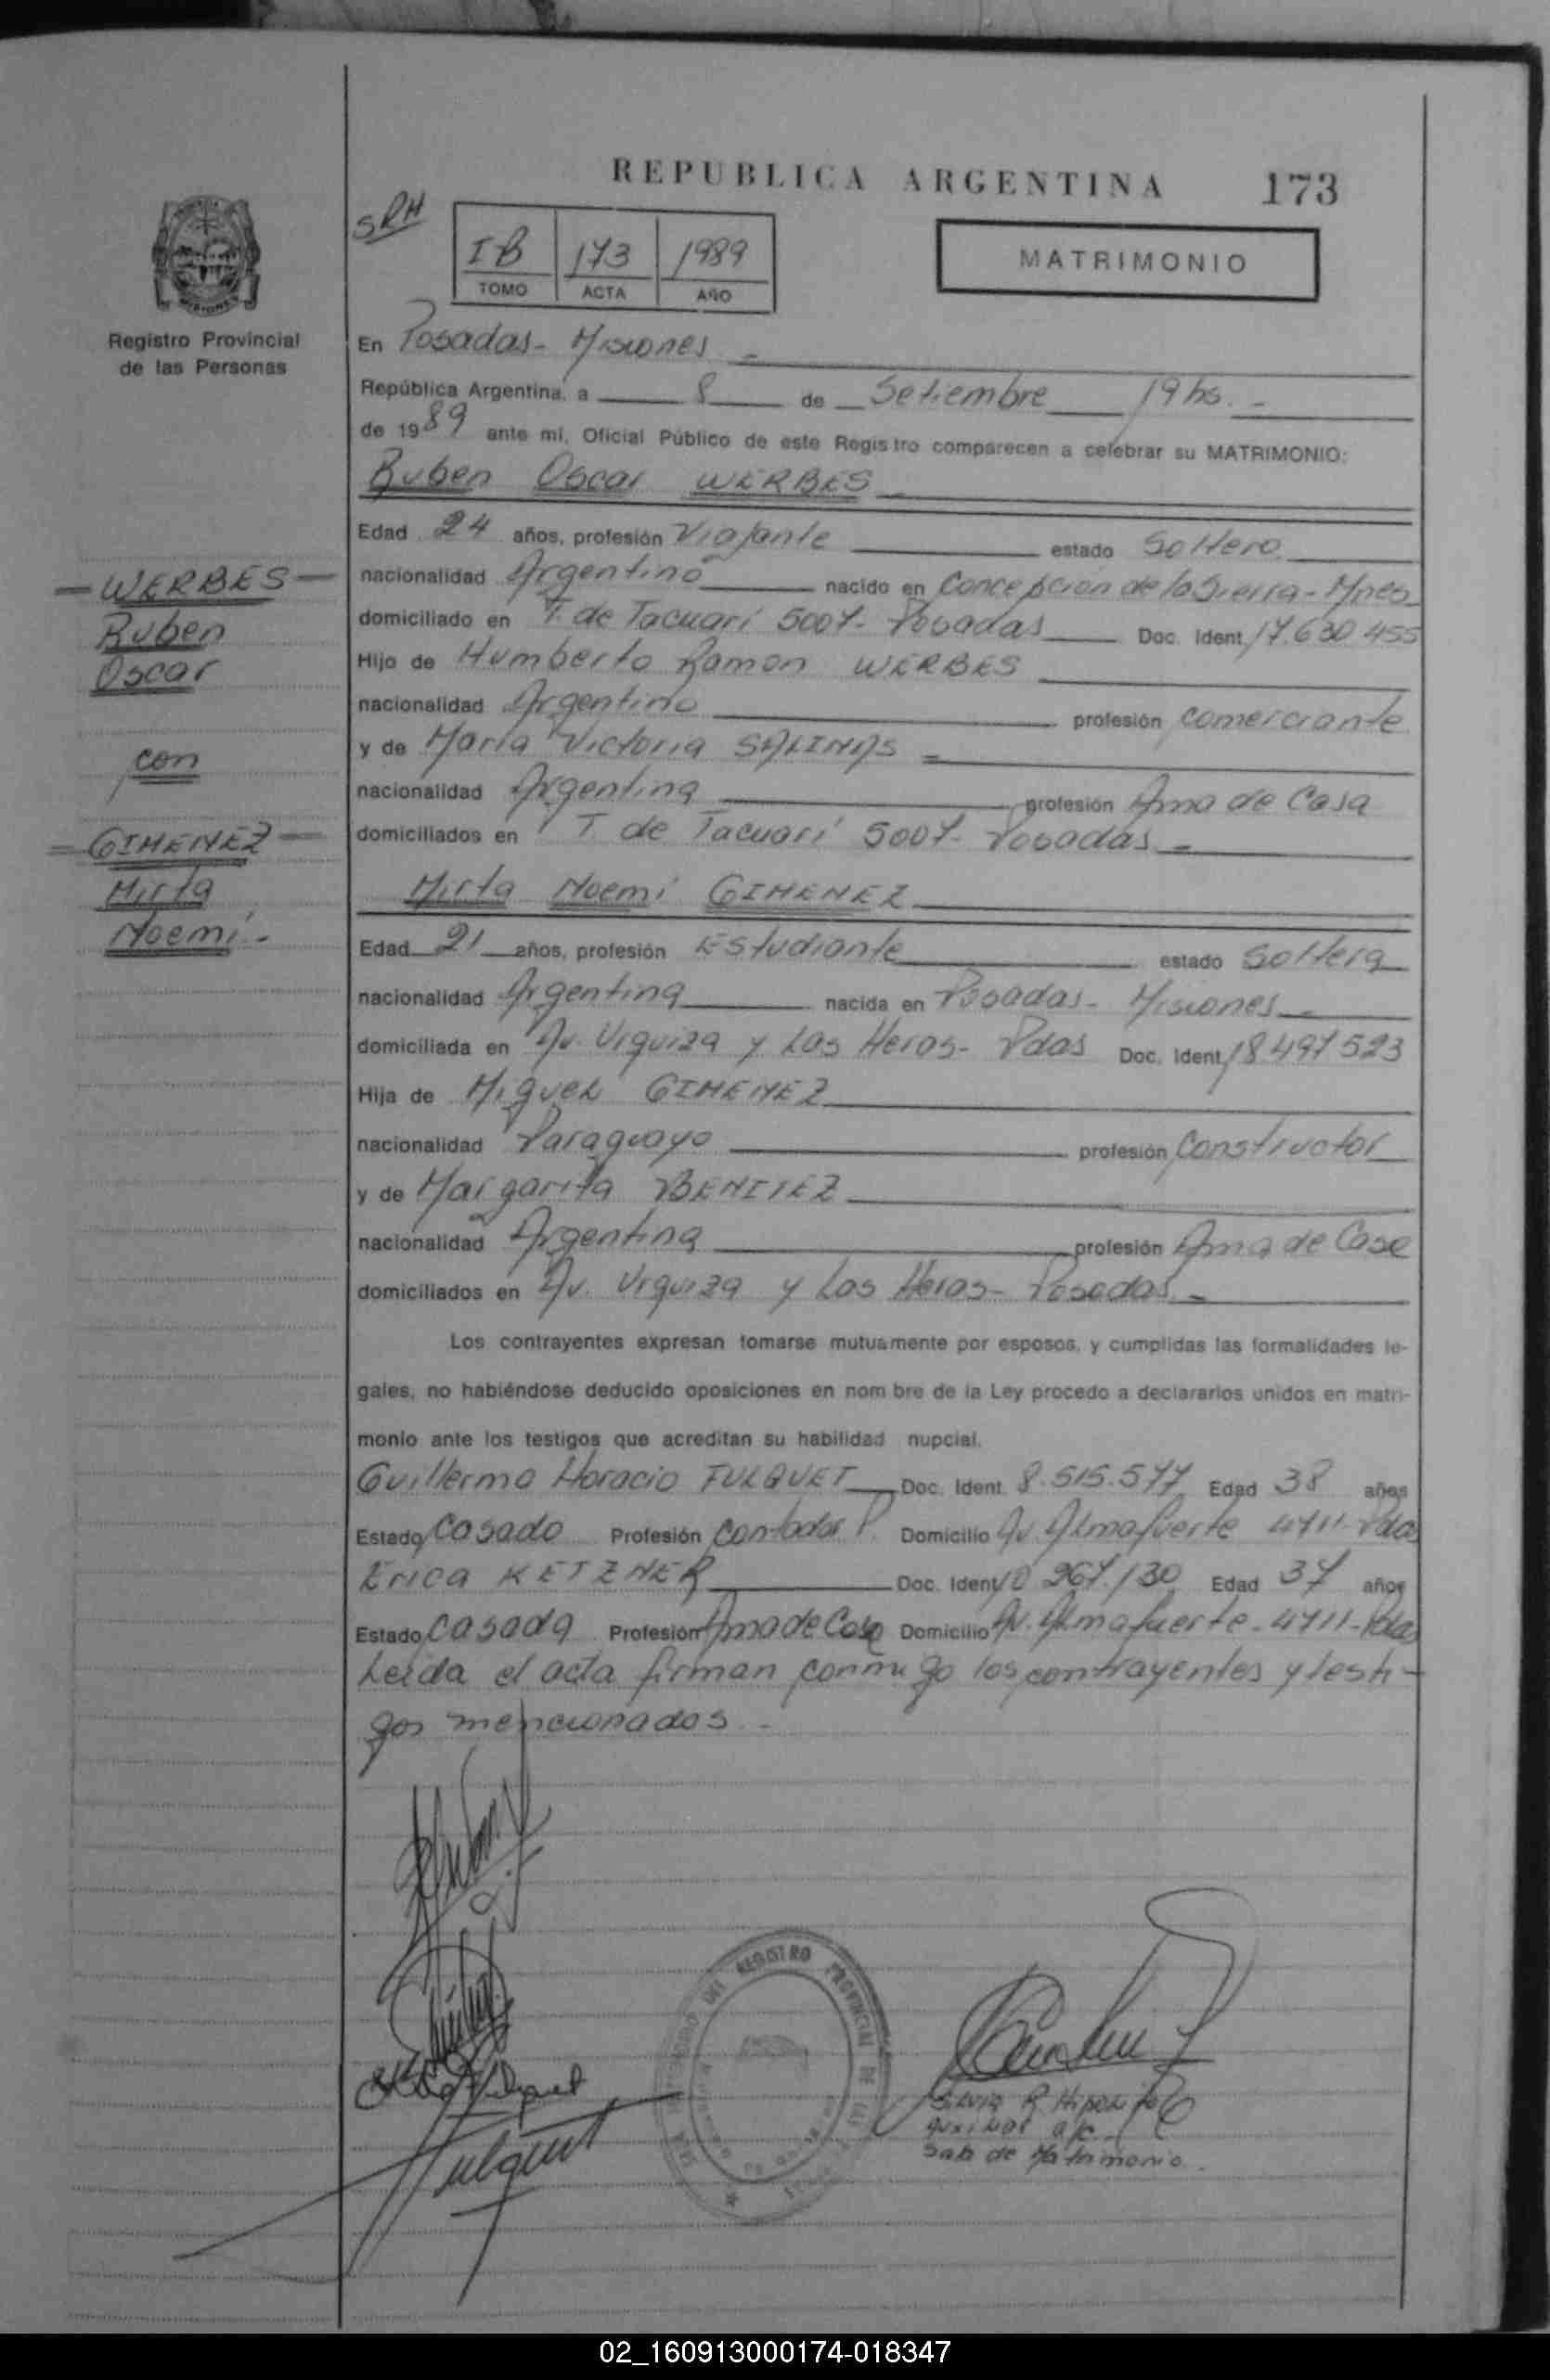 REPUBLICA ARGENTINA 173
SRH
IB 173 1989
TOMO ACTA AÑO
MATRIMONIO
MISIONES
Registro Provincial
de las Personas
En Posadas - Misiones -
República Argentina, a 8 de Setiembre 19 hs. -
de 1989 ante mí, Oficial Público de este Registro comparecen a celebrar su MATRIMONIO:
Ruben Oscar WERBES
Edad 24 años, profesión Viajante estado Soltero
nacionalidad Argentino nacido en Concepcion de la Sierra - Mnes
domiciliado en T. de Tacuarí 5007 - Posadas Doc. Ident. 17.630.455
Hijo de Humberto Ramon WERBES
nacionalidad Argentino profesión comerciante
y de María Victoria SALINAS
nacionalidad Argentina profesión Ama de Casa
domiciliados en T. de Tacuarí 5007 - Posadas -
Mirta Noemí GIMENEZ
Edad 21 años, profesión Estudiante estado Soltera
nacionalidad Argentina nacida en Posadas - Misiones -
domiciliada en Av. Urquiza y Las Heras - Pdas Doc. Ident. 18.497.523
Hija de Miguel GIMENEZ
nacionalidad Paraguayo profesión Constructor
y de Margarita BENITEZ
nacionalidad Argentina profesión Ama de Casa
domiciliados en Av. Urquiza y Las Heras - Posadas -
Los contrayentes expresan tomarse mutuamente por esposos, y cumplidas las formalidades le-
gales, no habiéndose deducido oposiciones en nombre de la Ley procedo a declararlos unidos en matri-
monio ante los testigos que acreditan su habilidad nupcial.
Guillermo Horacio FULQUET Doc. Ident. 8.515.577 Edad 38 años
Estado Casado Profesión Contador P. Domicilio Av. Almafuerte 4711 - Pdas
Erica KETZNER Doc. Ident. 10 267.130 Edad 37 años
Estado Casada Profesión Ama de Casa Domicilio Av. Almafuerte - 4711 - Pdas
Leida el acta firman conmigo los contrayentes y testi-
gos mencionados -
WERBES
Ruben
Oscar
con
GIMENEZ
Mirta
Noemí -
Fulquet
REGISTRO PROVINCIAL DE LAS
Silvia R. Hipolito
Auxiliar a/c
Sala de Matrimonio.
02_160913000174-018347